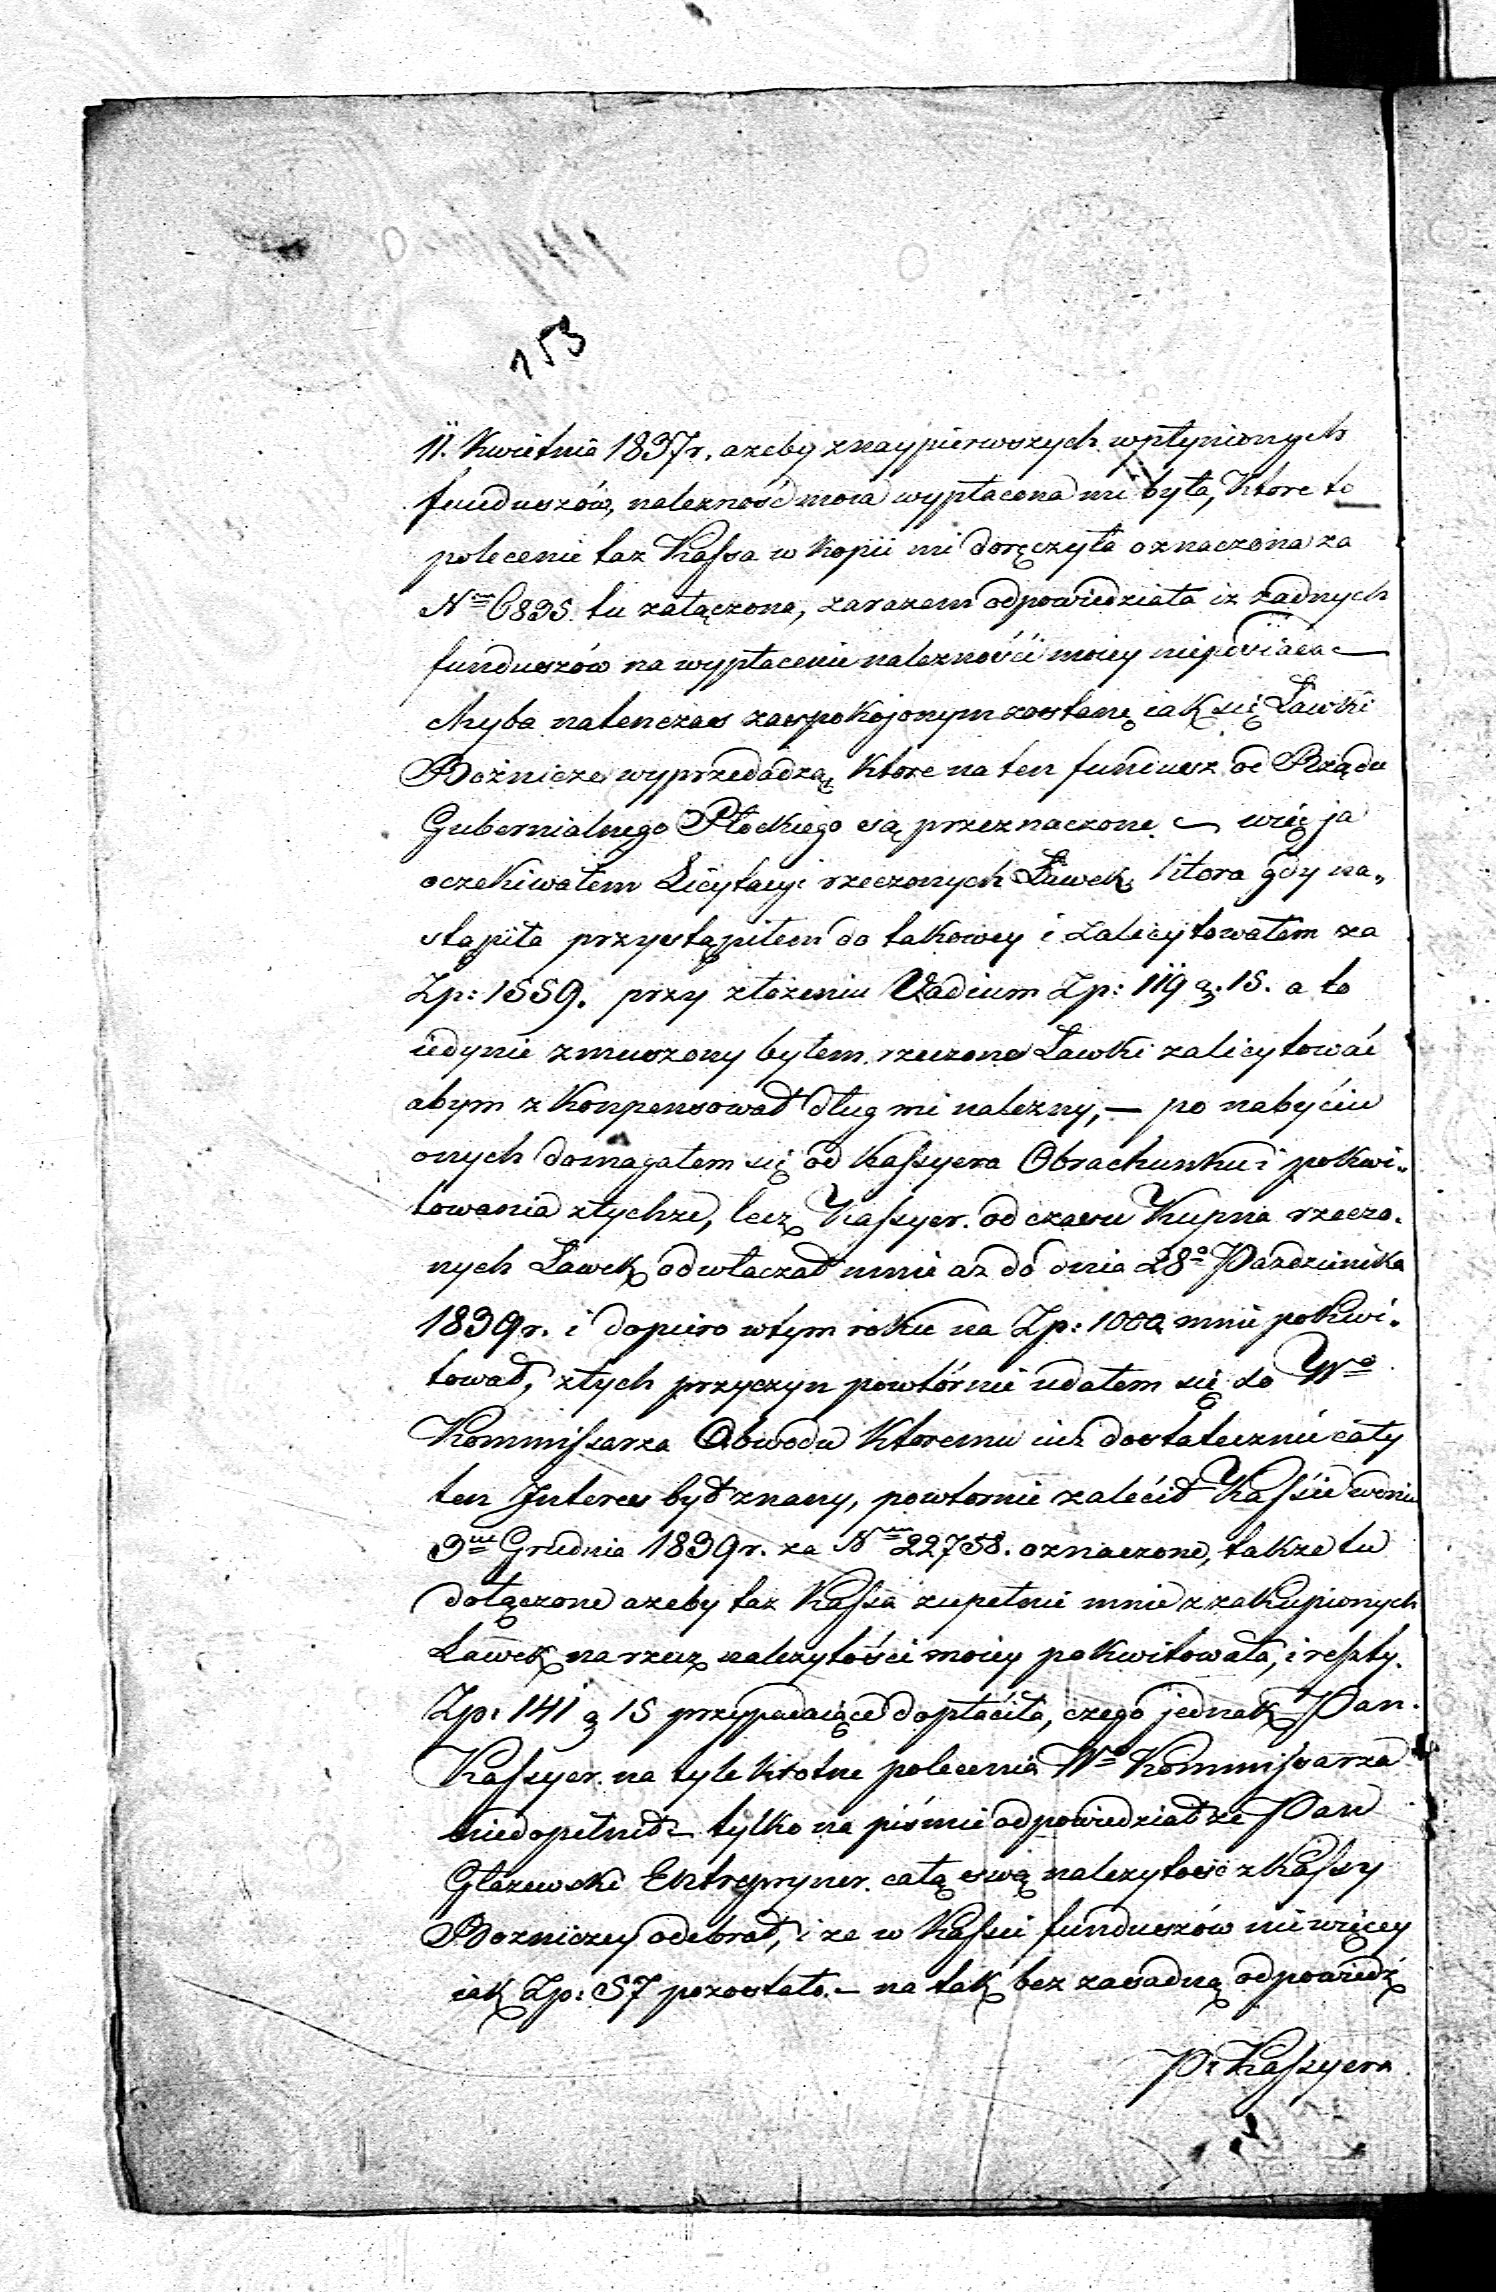 153
11. Kwietnia 1837r. azeby znaypierwszych wpłynionych
funduszów, nalezność moia wypłacona mi była, Ktore to
polecenie taz Kassa w Kopii mi doręczyła oznaczona za
N<sup>m</sup> 6835. tu załączone, zarazem odpowiedziała iz zadnych
funduszów na wypłacenie nalezności moiey nieposiada –
chyba natenczas zaspokojonym zostanę iak się Ławki
Bożnicze wyprzedadzą, Ktore na ten fundusz od Rządu
Gubernialnego Płockiego są przeznaczone. – więc ja
oczekiwałem Licytacyi rzeczonych Ławek, Ktora gdy na„
stąpiła przystąpiłem do takowey i zalicytowałem za
Zp: 1559. przy złożeniu Vadium Zp: 119 g. 15. a to
iedynie zmuszony byłem rzeczone Ławki zalicytować
abym z Konpensował dług mi nalezny, – po nabyciu
onych domagałem się od Kassyera Obrachunku i pokwi„
towania ztychze, lecz Kassyer. od czasu Kupna rzeczo.
nych Ławek odwłaczał mnie az do dnia 28<sup>o</sup> Pazdziernika
1839r. i dopiero wtym roku na Zp: 1000 mnie pokwi„
tował, ztych przyczyn powtórnie udałem się do W<sup>o</sup>
Kommissarza Obwodu Ktoremu iuz dostatecznie cały
ten Interes był znany, powtornie zalecił Kassie wdniu
9<sup>m</sup> Grudnia 1839r. za N<sup>m</sup> 22758. oznaczone, takze tu
dołączone azeby taz Kassa zupełnie mnie z zakupionych
Ławek na rzecz nalezytości moiey pokwitowała, i reszty.
Zp: 141 g 15 przypadaiące dopłaciła, czego jednak Pan.
Kassyer. na tyle Krotne polecenia W<sup>o</sup> Kommissarza
niedopełnił – tylko na piśmie odpowiedział ze Pan
Głazewski Entrepryner. całą swą nalezytość z Kassy
Bozniczey odebrał, i ze w Kassie funduszów niewięcey
iak Zp: 57 pozostało. – na tak bez zasadną odpowiedź
P. Kassyera